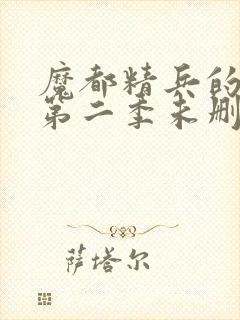 魔都精兵的
第二季未删
萨塔尔